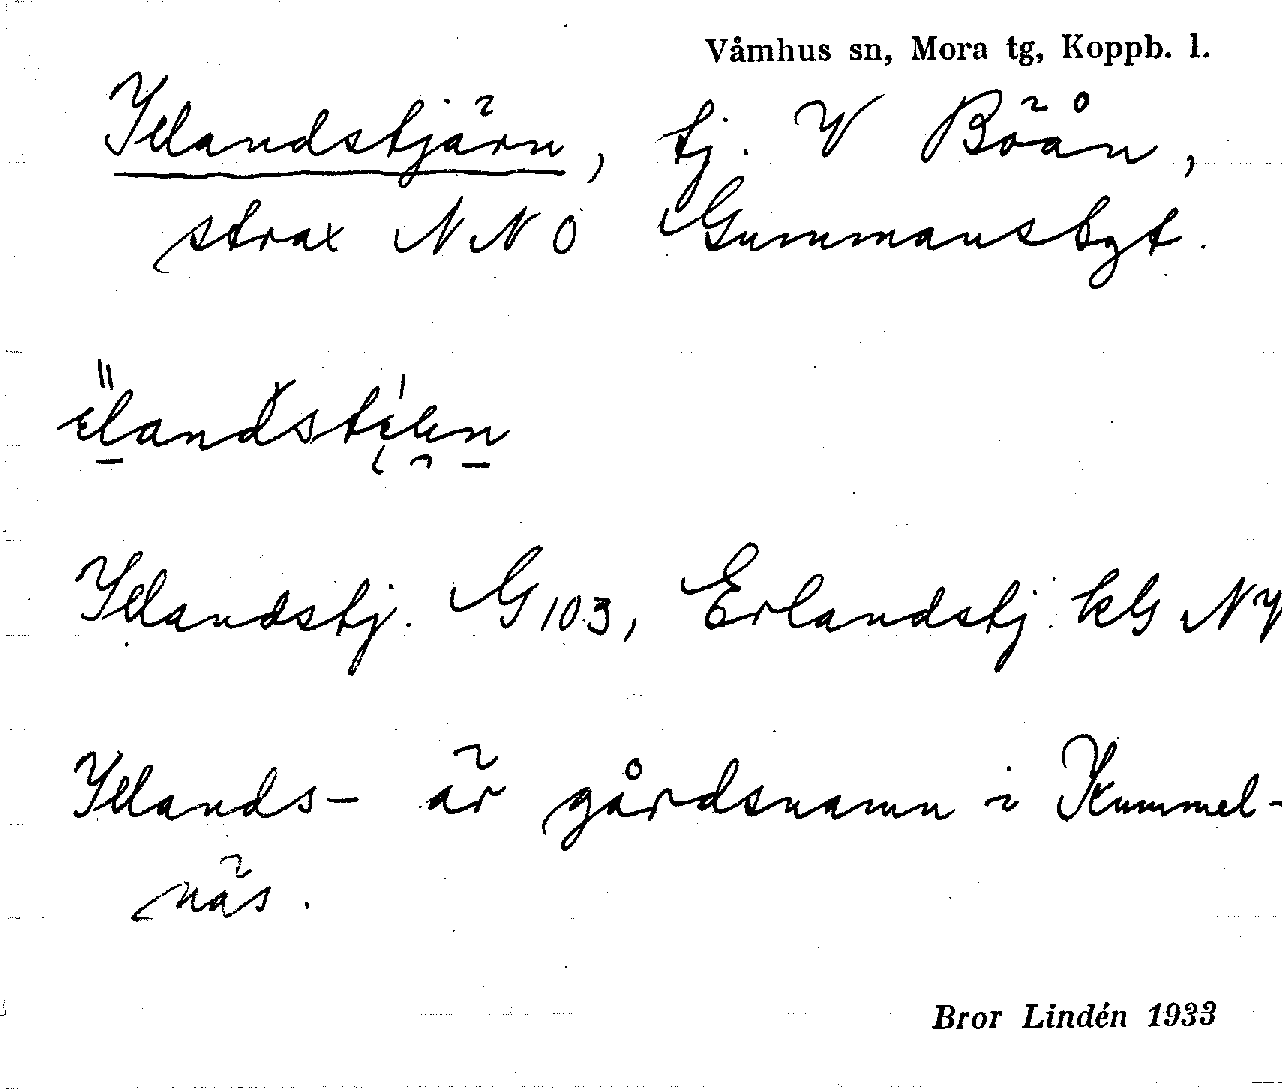 Våmhus sn, Mora tg, Koppb. l.
Ilandstjärn, tj. V Böån,
strax NNO Gummansbyt.
Ilandstj. G 103, Erlandstj. kG NV
Ilands- är gårdsnamn i Kummel-
näs.
Bror Lindén 1933